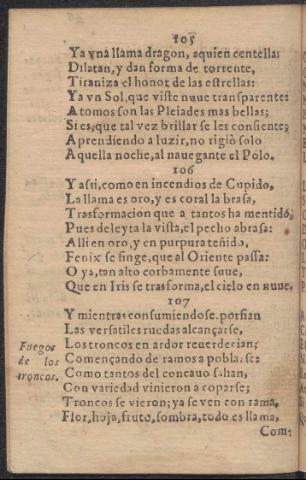 105
Ya vna llama dragon, a quien centellas
Dilatan, y dan forma de torrente,
Tiraniza el honor de las estrellas:
Ya vn Sol, que viste nuue transparente:
Atomos son las Pleiades mas bellas;
Si es, que tal vez brillar se les consiente;
Aprendiendo a luzir, no rigiò solo
Aquella noche, al nauegante el Polo.
106
Y assi, como en incendios de Cupido,
La llama es oro, y es coral la brasa,
Trasformacion que a tantos ha mentido,
Pues deleyta la vista, el pecho abrasa:
Alli en oro, y en purpura teñido,
Fenix se finge, que al Oriente passa:
O ya, tan alto corbamente suue,
Que en Iris se trasforma, el cielo en nuue.
107
Y mientras consumiendose, porfian
Las versatiles ruedas alcançarse,
Los troncos en ardor reuerdecian;
Començando de ramos a poblarse:
Como tantos del concauo salian,
Con variedad vinieron a coparse;
Troncos se vieron; ya se ven con rama,
Flor, hoja, fruto, sombra, todo es llama,
Com-
Fuegos
de los
troncos.